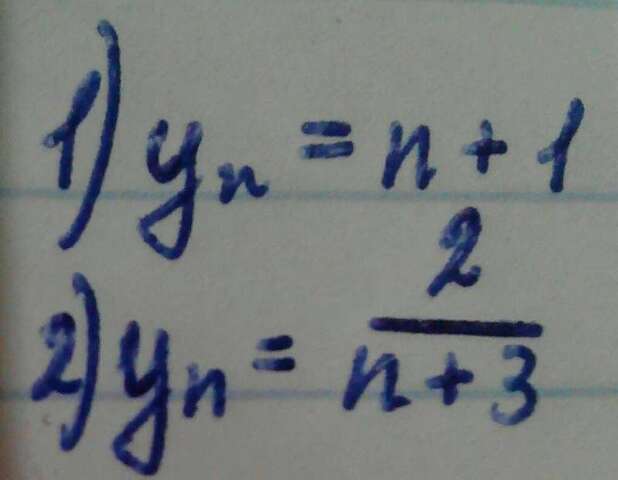 1) yₙ = n + 1
2) yₙ = 2/(n + 3)